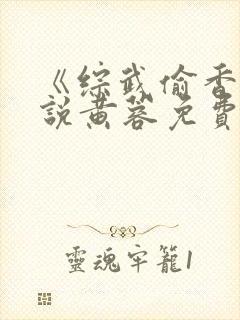 《綜武偷香
說黃蓉免費
靈魂牢籠1